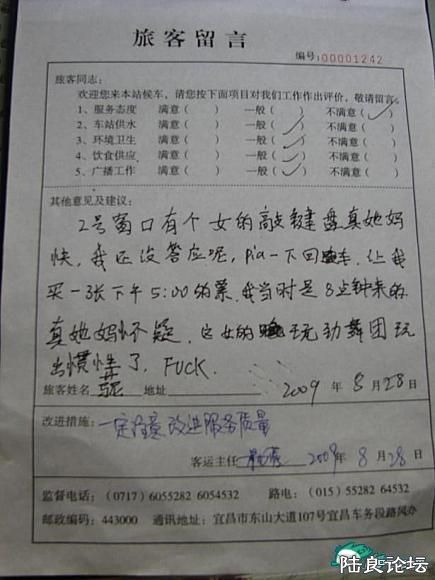 旅客留言
编号:00001242
旅客同志:
欢迎您来本站候车,请您按下面项目对我们工作作出评价,敬请留言。
1、服务态度 满意( ) 一般( ) 不满意(✓)
2、车站供水 满意( ) 一般(✓) 不满意( )
3、环境卫生 满意( ) 一般(✓) 不满意( )
4、饮食供应 满意( ) 一般(✓) 不满意( )
5、广播工作 满意( ) 一般(✓) 不满意( )
其他意见及建议:
2号窗口有个女的敲键盘真她妈
快,我还没答应呢,pia一下回车,让我
买一张下午5:00的票,我当时是8点钟来的
真她妈怀疑,这女的 玩劲舞团玩
出惯性了,FUCK.
旅客姓名 地址 2009年8月28日
改进措施: 一定注意改进服务质量
客运主任 2009年8月28日
监督电话:(0717)6055282 6054532 路电:(015)55282 64532
邮政编码:443000 通讯地址:宜昌市东山大道107号宜昌车务段路风办
陆良论坛